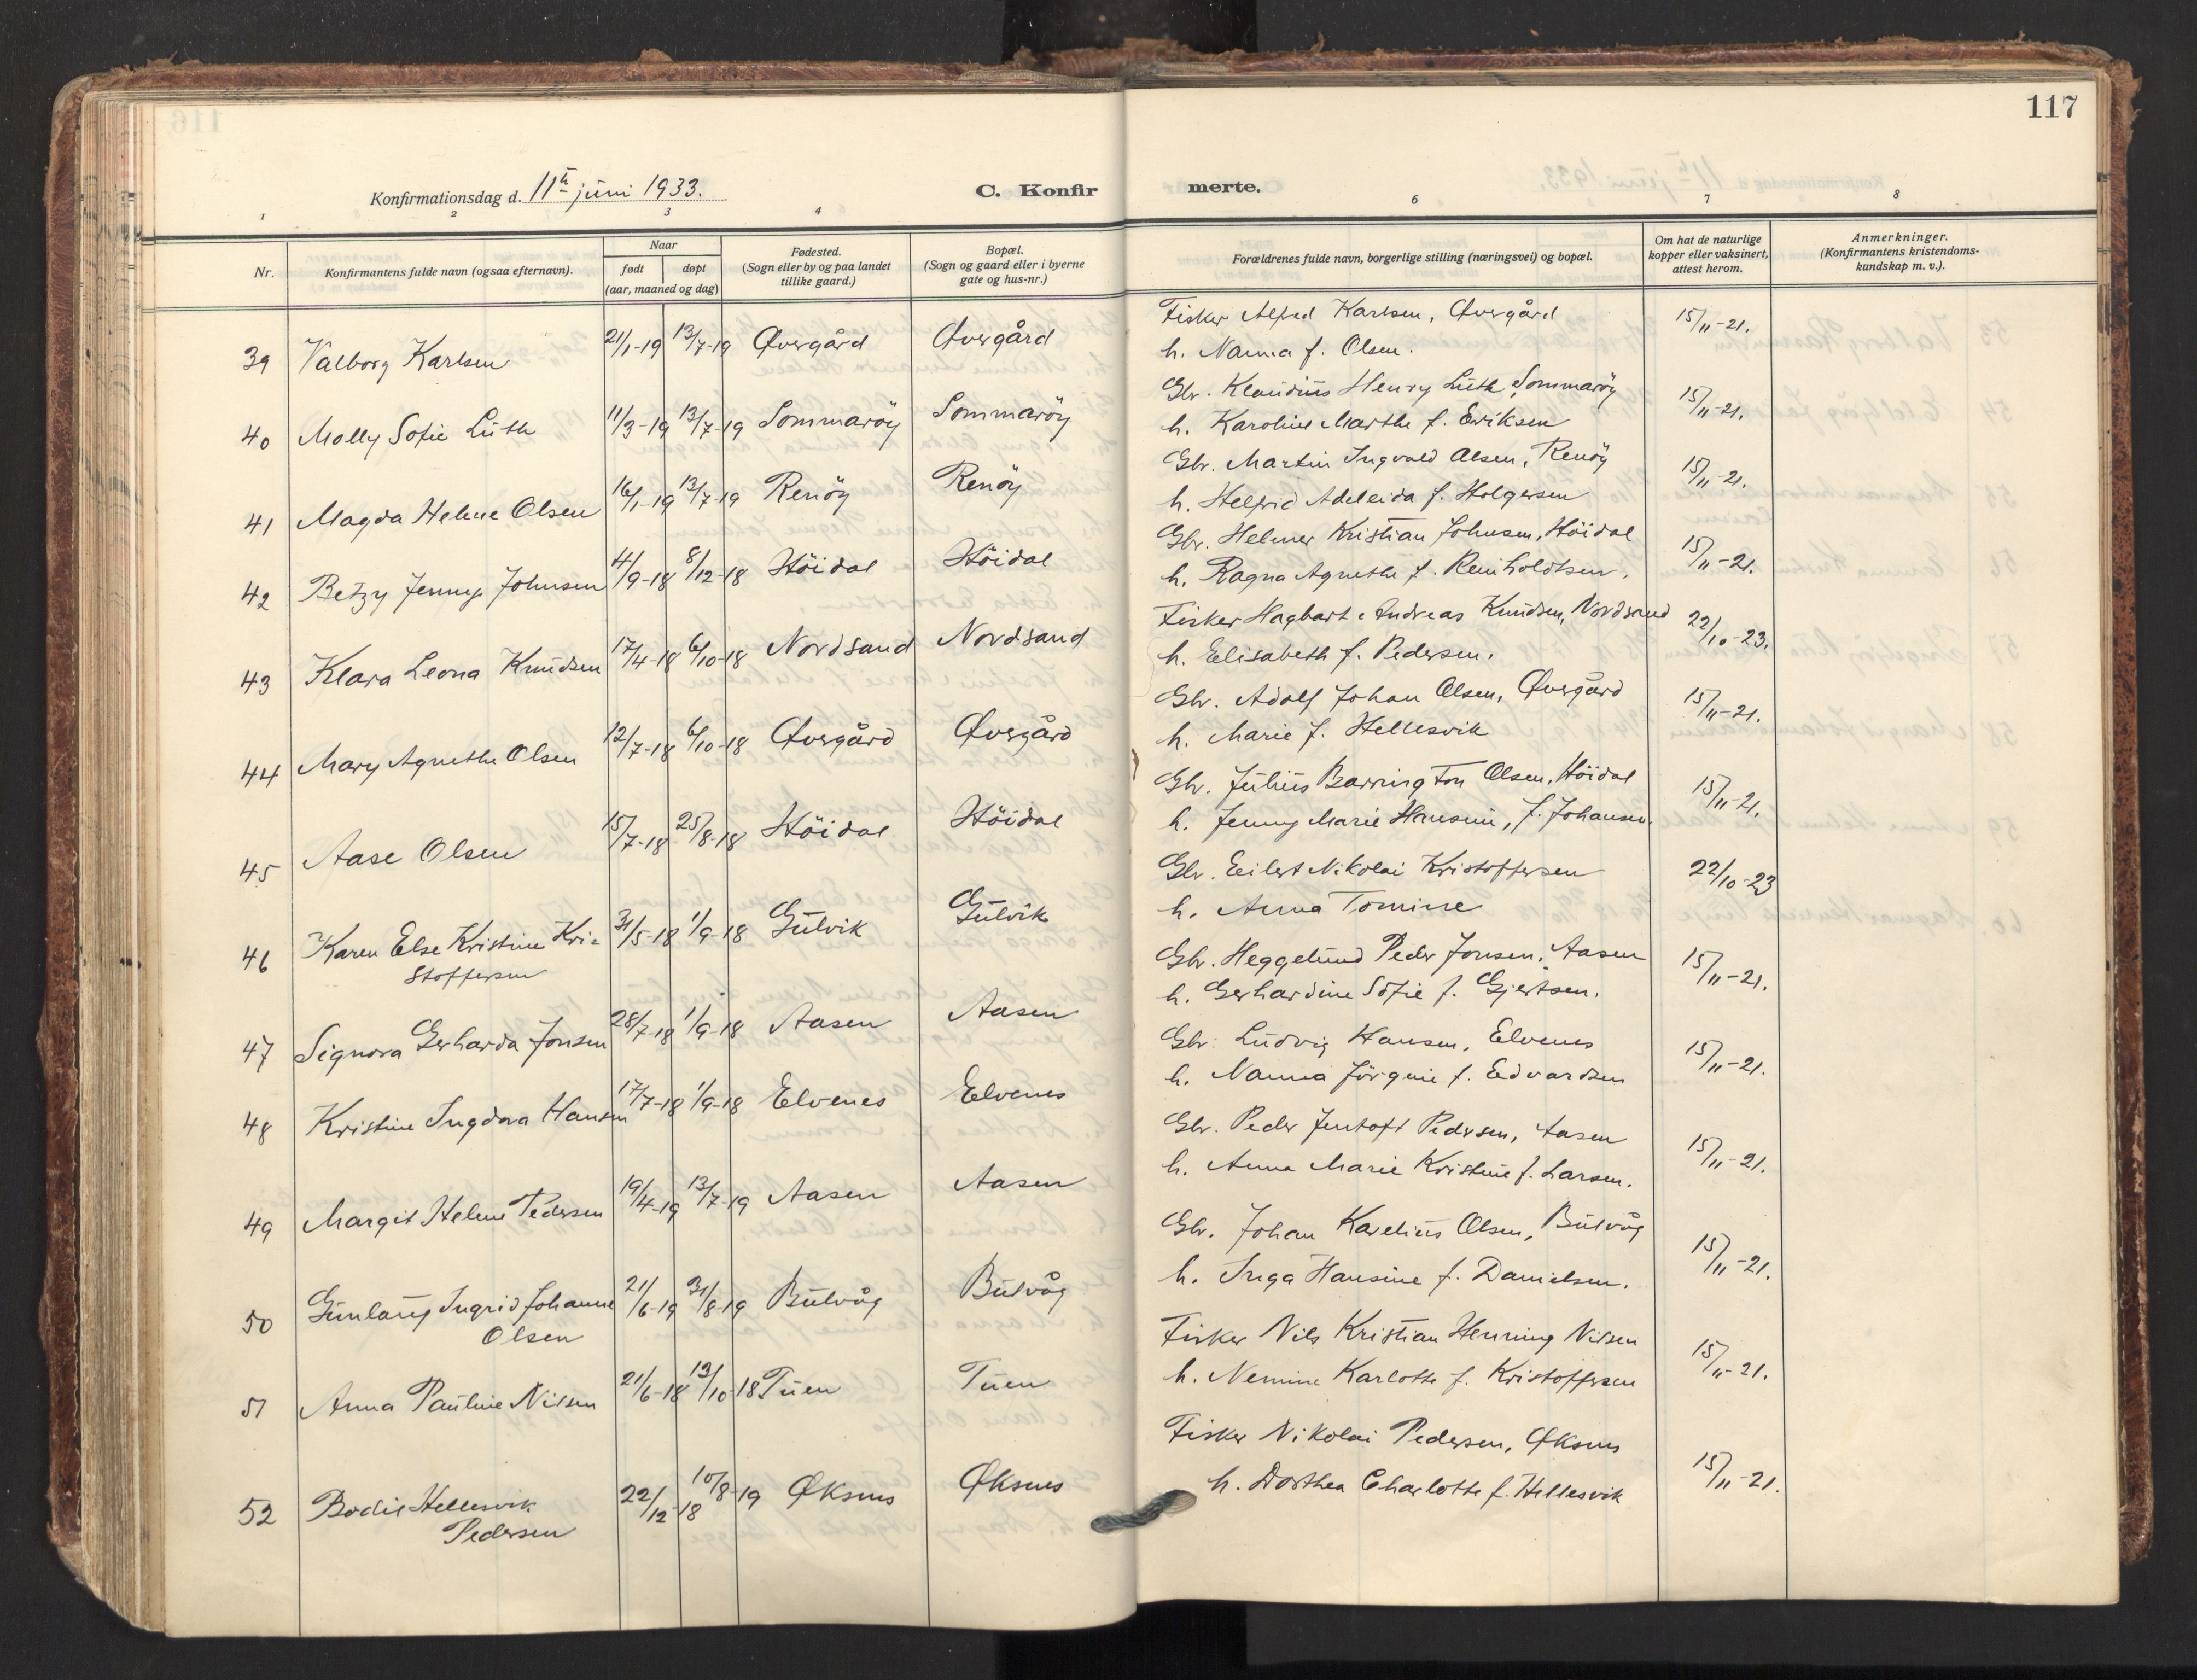 117
Konfirmationsdag d. 11te juni 1933.
C. Konfir merte.
1 2 3 4 6 7 8
Nr.
Konfirmantens fulde navn (ogsaa efternavn).
Naar
født døpt
(aar, maaned og dag)
Fødested.
(Sogn eller by og paa landet
tillike gaard.)
Bopæl.
(Sogn og gaard eller i byerne
gate og hus-nr.)
Forældrenes fulde navn, borgerlige stilling (næringsvei) og bopæl.
Om hat de naturlige
kopper eller vaksinert,
attest herom.
Anmerkninger.
(Konfirmantens kristendoms-
kundskap m. v.).
39 Valborg Karlsen 21/1-19 13/7-19 Øvergård Øvergård Fisker Alfred Karlsen, Øvergård 15/11-21.
h. Nanna f. Olsen.
40 Molly Sofie Lüth 11/3-19 13/7-19 Sommaröy Sommaröy Gbr. Klaudius Henry Lüth, Sommaröy 15/11-21.
h. Karoline Marthe f. Eriksen
41 Magda Helene Olsen 16/1-19 13/7-19 Renöy Renöy Gbr. Martin Ingvald Olsen, Renöy 15/11-21.
h. Helfrid Adeleida f. Holgersen
42 Betzy Jenny Johnsen 4/9-18 8/12-18 Höidal Höidal Gbr. Helmer Kristian Johnsen, Höidal 15/11-21.
h. Ragna Agnethe f. Reinholdtsen.
43 Klara Leona Knudsen 17/4-18 6/10-18 Nordsand Nordsand Fisker Hagbart Andreas Knudsen, Nordsand 22/10-23.
h. Elisabeth f. Pedersen.
44 Mary Agnethe Olsen 12/7-18 6/10-18 Øvergård Øvergård Gbr. Adolf Johan Olsen, Øvergård 15/11-21.
h. Marie f. Hellesvik
45 Aase Olsen 15/7-18 25/8-18 Höidal Höidal Gbr. Julius Barrington Olsen, Höidal 15/11-21.
h. Jenny Marie Hansine, f. Johansen.
46 Karen Else Kristine Kri- 31/5-18 1/9-18 Gulvik Gulvik Gbr. Eilert Nikolai Kristoffersen 22/10-23
stoffersen h. Anna Tomine
47 Signora Gerharda Jonsen 28/7-18 1/9-18 Aasen Aasen Gbr. Heggelund Peder Jonsen, Aasen 15/11-21.
h. Gerhardine Sofie f. Gjertsen.
48 Kristine Ingdora Hansen 17/7-18 1/9-18 Elvenes Elvenes Gbr. Ludvig Hansen, Elvenes 15/11-21.
h. Nanna Jörgine f. Edvardsen
49 Margit Helene Pedersen 19/4-19 13/7-19 Aasen Aasen Gbr. Peder Jentoft Pedersen, Aasen 15/11-21.
h. Anna Marie Kristine f. Larsen.
50 Gunlaug Ingrid Johanne 21/6-19 31/8-19 Butvåg Butvåg Gbr. Johan Karelius Olsen, Butvåg 15/11-21.
Olsen h. Inga Hansine f. Danielsen.
51 Anna Pauline Nilsen 21/6-18 13/10-18 Tuen Tuen Fisker Nils Kristian Henning Nilsen 15/11-21.
h. Nemine Karlotte f. Kristoffersen
52 Bodil Hellesvik 22/12-18 10/8-19 Øksnes Øksnes Fisker Nikolai Pedersen, Øksnes 15/11-21.
Pedersen h. Dorthea Charlotte f. Hellesvik